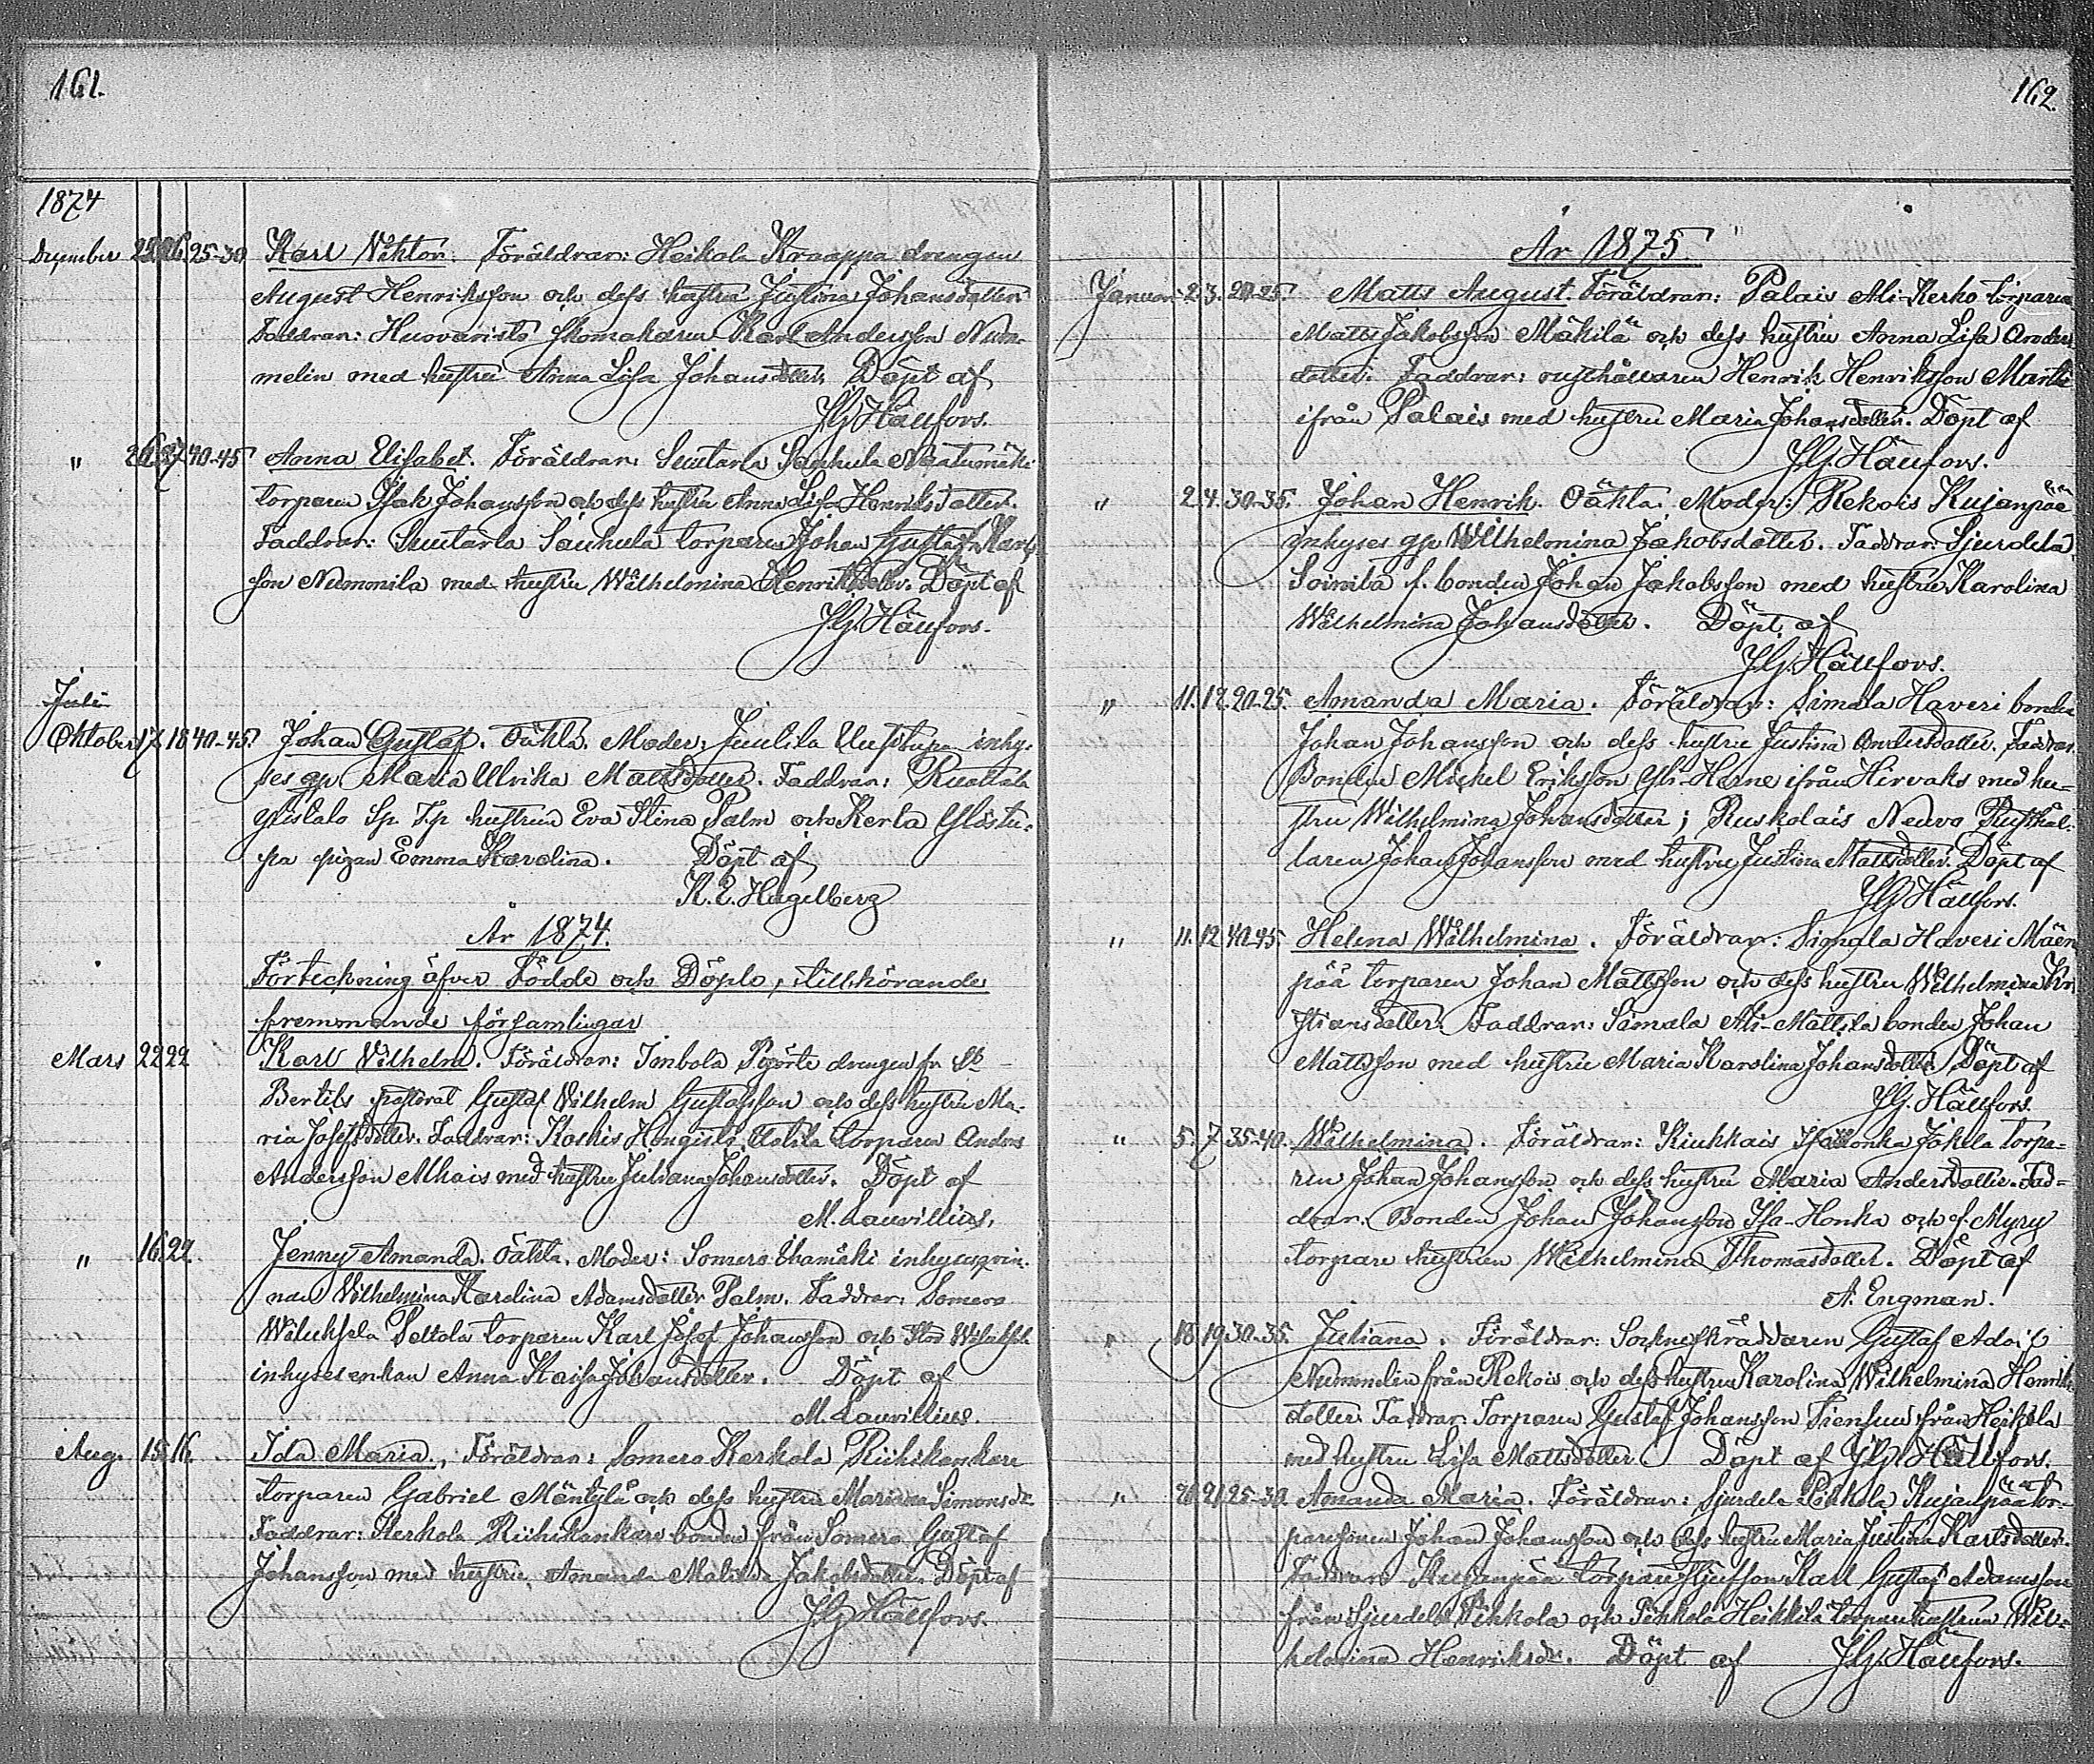 161.
1874
December 25 26. 25-30 Karl Viktor. Föräldrar: Heikola Knaappa drengen
August Henriksson och dess hustru Justina Johansdotter
Faddrar: Huovarists skomakaren Karl Andersson Num-
melin med hustru Anna Lisa Johansdotter. Döpt af
Hällfors.
" 26. 27. 40-45 Anna Elisabet. Föräldrar:
torparen Isak Johansson och dess hustru Anna Lisa Henriksdotter.
Faddrar: torparen Johan Gustaf Karls-
son Nummenila med hustru Wilhelmina Henriksdotter. Döpt af
Hällfors.
Juli
Oktober 17. 18 40-45. Johan Gustaf. Oäkta. Moder: Uusitupa inhy-
ses qv Maria Ulrika Mattsdotter. Faddrar:
Ylistalo hustrun Eva Stina Palm och Kerla Ylistu-
pa pigan Emma Karolina. Döpt af
K. E. Hagelberg
År 1874.
Förteckning öfver Födde och Döpte, tillhörande
fremmande församlingar
Mars 22 22 Karl Vilhelm. Föräldrar: drengen fr. St
Bertils pastorat Gustaf Vilhelm Gustafsson och dess hustru Ma-
ria Josefsdotter. Faddrar: Koskis Hongisto torparen Anders
Andersson med hustru Juliana Johansdotter. Döpt af
M. Lauvillius.
" 16. 22. Jenny Amanda. Oäkta. Moder: Somero inhysesqvin-
nan Vilhelmina Karolina Adamsdotter Palm. Faddrar: Somero
Peltola torparen Karl Josef Johansson och
inhyses enkan Anna Kaisa Johansdotter. Döpt af
M. Lauvillius.
Aug. 15. 16. Ida Maria. Föräldrar: Somero Kerkola Riihikankare
torparen Gabriel Mäntylä och dess hustru Mariana Simonsdr.
Faddrar: Kerkola Riihikankare bonden från Somero Gustaf
Johansson med hustru Amanda Matilda Jakobsdotter. Döpt af
Hällfors.
162.
År 1875.
Januari 2. 3. 20-25. Matts August. Föräldrar: Palais Ali-Kerko torparen
Matts Jakobsson Mäkilä och dess hustru Anna Lisa Anders-
dotter. Faddrar: rusthållaren Henrik Henriksson Marki
ifrån Palais med hustru Maria Johansdotter. Döpt af
Hällfors.
" 2. 4. 30-35. Johan Henrik. Oäkta. Moder: Rekois Kujanpää
inhyses qv Wilhelmina Jakobsdotter. Faddrar: Sjurdela
Soinila f. bonden Johan Jakobsson med hustru Karolina
Wilhelmina Johansdotter. Döpt af
Hällfors.
" 11. 12. 20-25. Amanda Maria. Föräldrar: Simala Haveri bonden
Johan Johansson och dess hustru Justina Andersdotter. Faddrar:
Bonden Mickel Eriksson Yli-Heine ifrån Hirvaks med hu-
stru Wilhelmina Johansdotter; Ruskolais Neuvo Rusthål-
laren Johan Johansson med hustru Justina Mattsdotter. Döpt af
Hällfors.
" 11. 12. 40-45. Helena Wilhelmina. Föräldrar: Simala Haveri Mäen-
pää torparen Johan Mattsson och dess hustru Wilhelmina Kri-
stiansdotter. Faddrar: Simala Ali-Mattila bonden Johan
Mattsson med hustru Maria Karolina Johansdotter. Döpt af
Hällfors.
" 5. 7. 35-40. Wilhelmina. Föräldrar: Kiukkais Isohonka Jokela torpa-
ren Johan Johansson och dess hustru Maria Andersdotter. Fad-
drar: Bonden Johan Johansson Iso-Honka och f. Myry
torpare hustrun Wilhelmina Thomasdotter. Döpt af
A. Engman.
" 18. 19. 30-35. Juliana. Föräldrar: Sockneskräddaren Gustaf Adolf
Nummelin från Rekois och dess hustru Karolina Wilhelmina Henriks-
dotter. Faddrar: Torparen Gustaf Johansson Tiensuu från Heikola
med hustru Lisa Mattsdotter. Döpt af Hällfors.
" 20. 21. 25-30. Amanda Maria. Föräldrar: Sjurdela Pikkola Kujanpää tor-
paresonen Johan Johansson och dess hustru Maria Justina Karlsdotter.
Faddrar: Kujanpää torpare Karl Gustaf Adamsson
från Sjurdela Pikkola och Pikkola Heikkilä torparehustrun Wil-
helmina Henriksdr. Döpt af Hällfors.